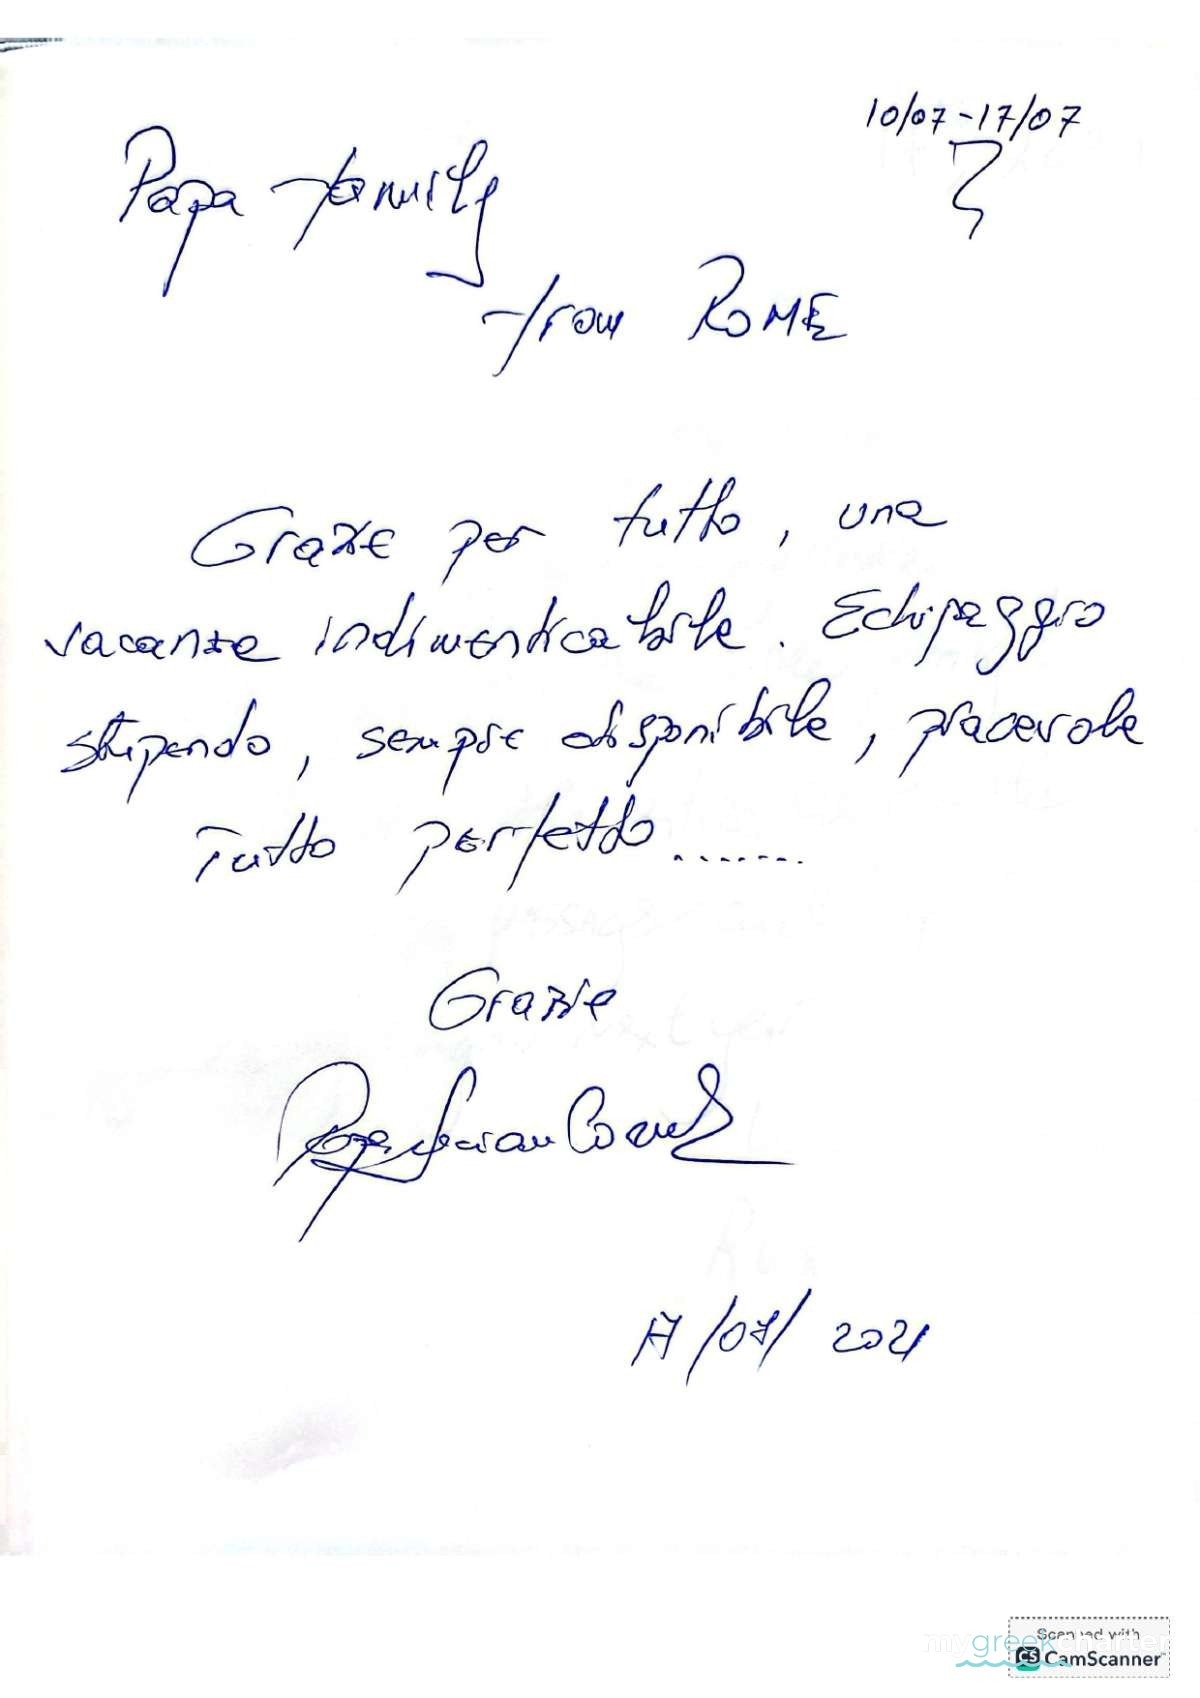 10/07-17/07
Papa family
from ROME
Grazie per tutto, una
vacanza indimenticabile. Echipaggio
stupendo, sempre disponibile, piacevole
Tutto perfetto........
Grazie
Papa
17/07/2021
Scanned with
mygreekcharter
CS CamScanner